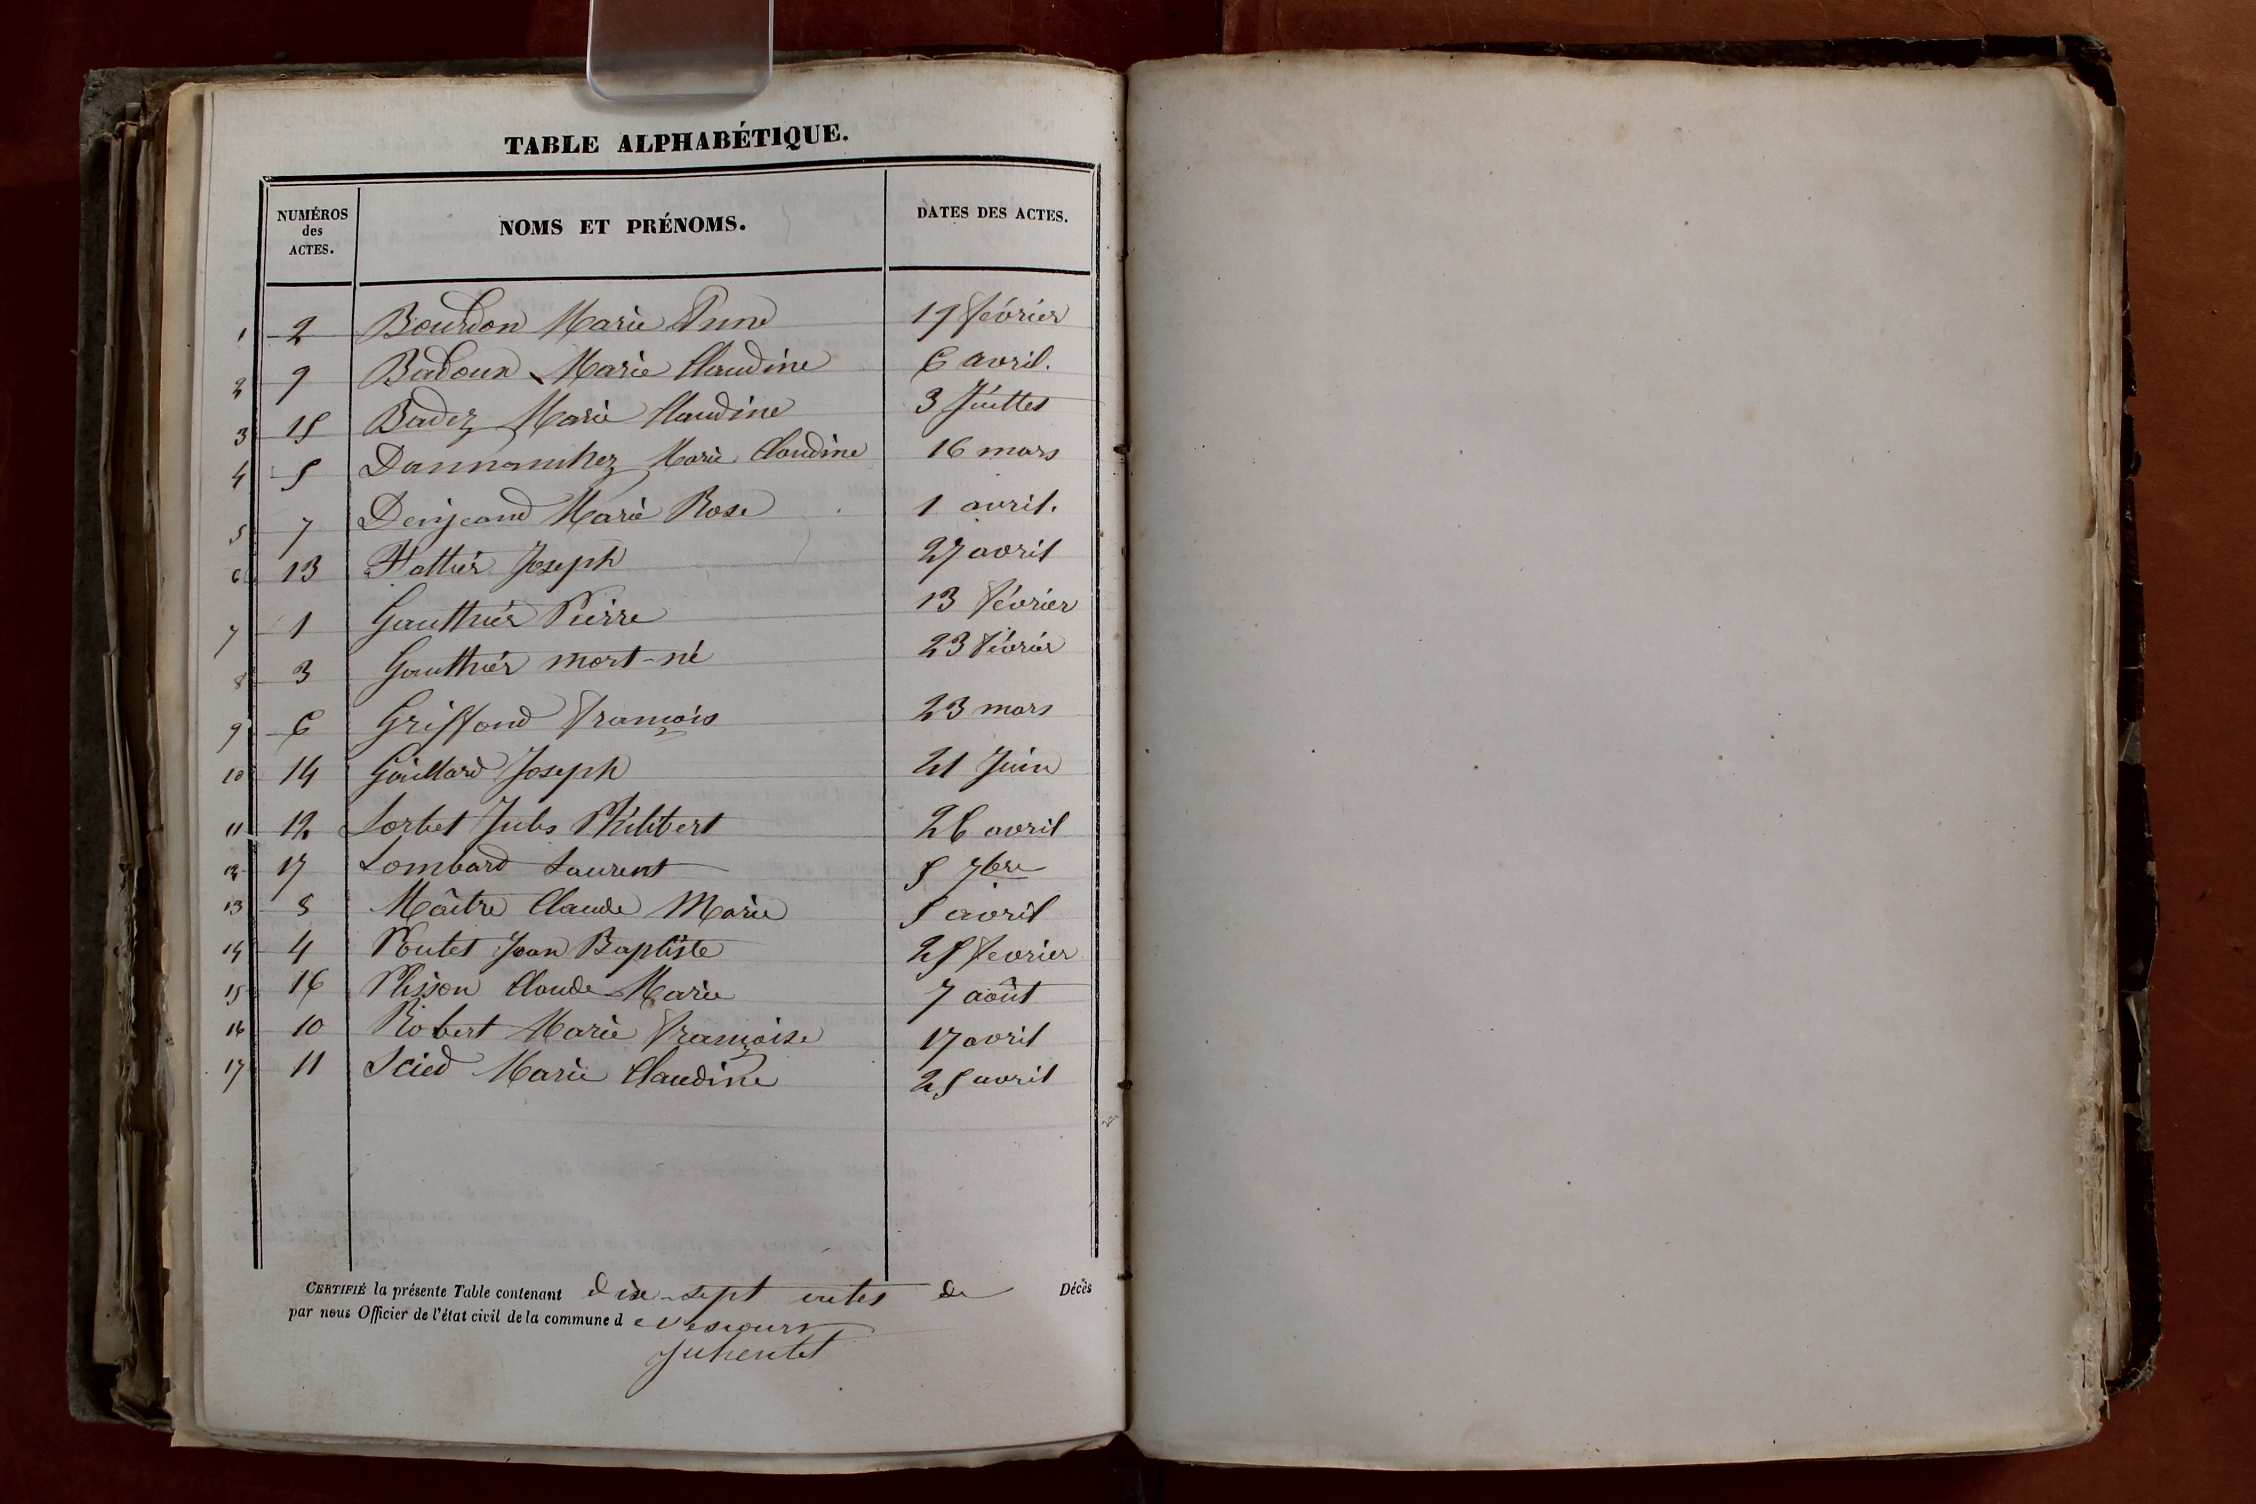 TABLE ALPHABÉTIQUE.
NUMÉROS des ACTES. NOMS ET PRÉNOMS. DATES DES ACTES.
1 2 Bourdon Marie Anne 19 février
2 9 Badoux Marie Claudine 6 avril.
3 15 Badez Marie Claudine 3 Juillet
4 5 Marie Claudine 16 mars
5 7 Marie Rose 1 avril.
6 13 Joseph 27 avril
7 1 Gauthier Pierre 13 février
8 3 Gauthier mort-né 23 février
9 6 Griffond François 23 mars
10 14 Gaillard Joseph 21 Juin
11 12 Lorbet Jules Philibert 26 avril
12 17 Lombard Laurent 5 7bre
13 8 Maître Claude Marie 5 avril
14 4 Poutet Jean Baptiste 25 fevrier
15 16 Plisson Claude Marie 7 août
16 10 Robert Marie Françoise 17 avril
17 11 Scied Marie Claudine 25 avril
CERTIFIÉ la présente Table contenant dix-sept actes de Décès
par nous Officier de l'état civil de la commune d e